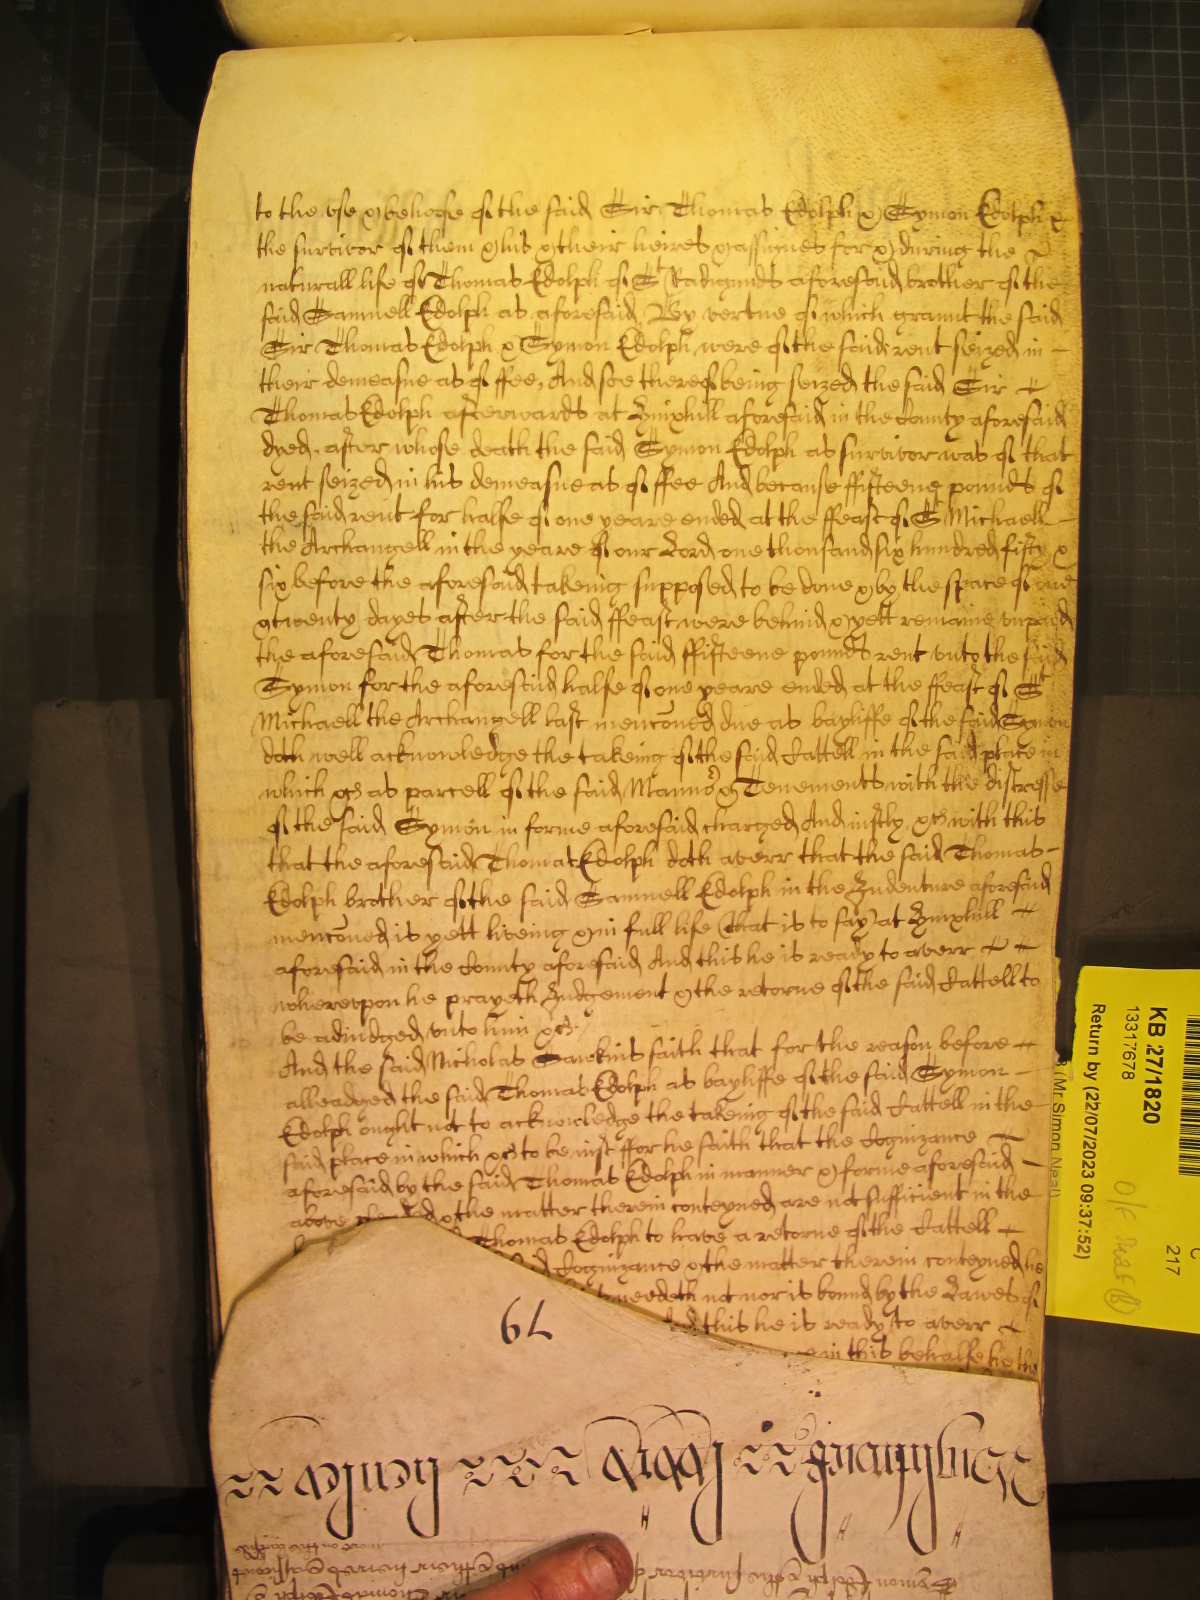 to the use & behoofe of the said Sir Thomas Edolph & Symon Edolph &
the survivor of them & his & their heires & assignes for & during the
naturall life of Thomas Edolph of St Radigunds aforesaid brother of the
said Samuell Edolph as aforesaid, By vertue of which graunt the said
Sir Thomas Edolph & Symon Edolph were of the said rent seized in
their demeasne as of ffee, And soe thereof being seized the said Sir
Thomas Edolph afterwards at Hinxhill aforesaid in the County aforesaid
dyed, after whose death the said Symon Edolph as survivor was of that
rent seized in his demeasne as of ffee And because ffifteene pounds of
the said rent for halfe of one yeare ended at the ffeast of St Michaell
the Archangell in the yeare of our Lord one thousand six hundred fifty &
six before the aforesaid takeing supposed to be done & by the space of one
& twenty dayes after the said ffeast were behind & yett remaine unpaid
the aforesaid Thomas for the said ffifteene pounds rent unto the said
Symon for the aforesaid halfe of one yeare ended at the ffeast of St
Michaell the Archangell last menconed due as bayliffe of the said Symon
doth well acknowledge the takeing of the said Cattell in the said place in
which &c as parcell of the said Mannor & Tenements with the distresse
of the said Symon in forme aforesaid charged And iustly &c with this
that the aforesaid Thomas Edolph doth averr that the said Thomas
Edolph brother of the said Samuell Edolph in the Indenture aforesaid
menconed is yett liveing & in full life (that is to say) at Hinxhill
aforesaid in the County aforesaid And this he is ready to averr
whereupon he prayeth Judgement & the retorne of the said Cattell to
be adiudged unto him &c
And the said Nicholas Sawkins saith that for the reason before
alleadged the said Thomas Edolph as bayliffe of the said Symon
Edolph ought not to acknowledge the takeing of the said Cattell in the
said place in which &c to be iust ffor he saith that the Cognizance
aforesaid by the said Thomas Edolph in manner & forme aforesaid
above pleaded & the matter therein conteyned are not sufficient in the
Thomas Edolph to have a retorne of the Cattell
Cognizance & the matter therein conteyned he
needeth not nor is bound by the Lawes of
this he is ready to averr
in this behalfe he
79
KB 27/1820
13317678
Return by (22/07/2023 09:37:52)
(Mr Simon Neal)
217
C